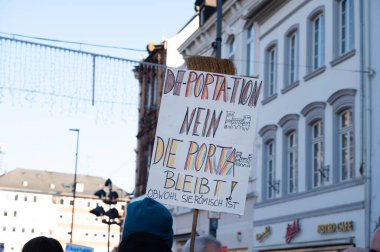 DE-PORTA-TION
NEIN
DIE PORTA
BLEIBT!
OBWOHL SIE RÖMISCH IST
BISTRO CAFE